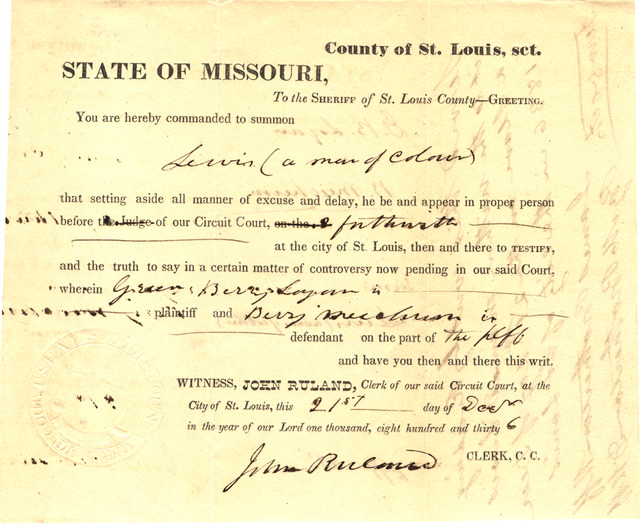 County of St. Louis, sct.
STATE OF MISSOURI,
To the SHERIFF of St. Louis County—GREETING.
You are hereby commanded to summon
Lewis (a man of Colour)
that setting aside all manner of excuse and delay, he be and appear in proper person
before the Judge of our Circuit Court, on the forthwith
at the city of St. Louis, then and there to TESTIFY,
and the truth to say in a certain matter of controversy now pending in our said Court,
wherein Green Berry Logan is
plaintiff and Berry Meachum is
defendant on the part of the plff
and have you then and there this writ.
WITNESS, JOHN RULAND, Clerk of our said Circuit Court, at the
City of St. Louis, this 21st day of Decr
in the year of our Lord one thousand, eight hundred and thirty 6
John Ruland CLERK, C. C.